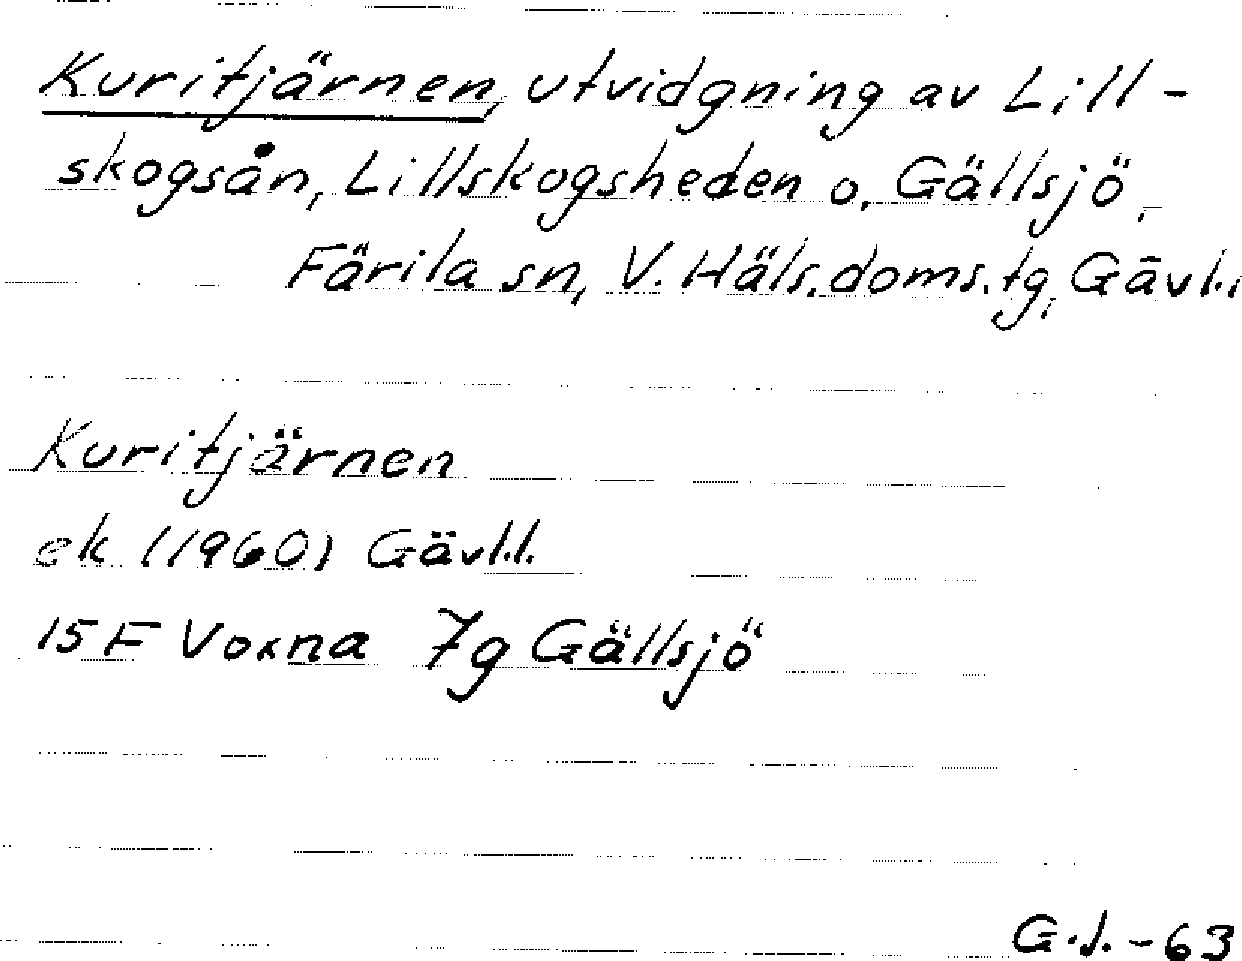 Kuritjärnen, utvidgning av Lill-
skogsån, Lillskogsheden o. Gällsjö,
Färila sn, V. Häls. doms. tg, Gävl.l
Kuritjärnen
ek (1960) Gävl.l.
15 F Voxna 7g Gällsjö
G.J. -63